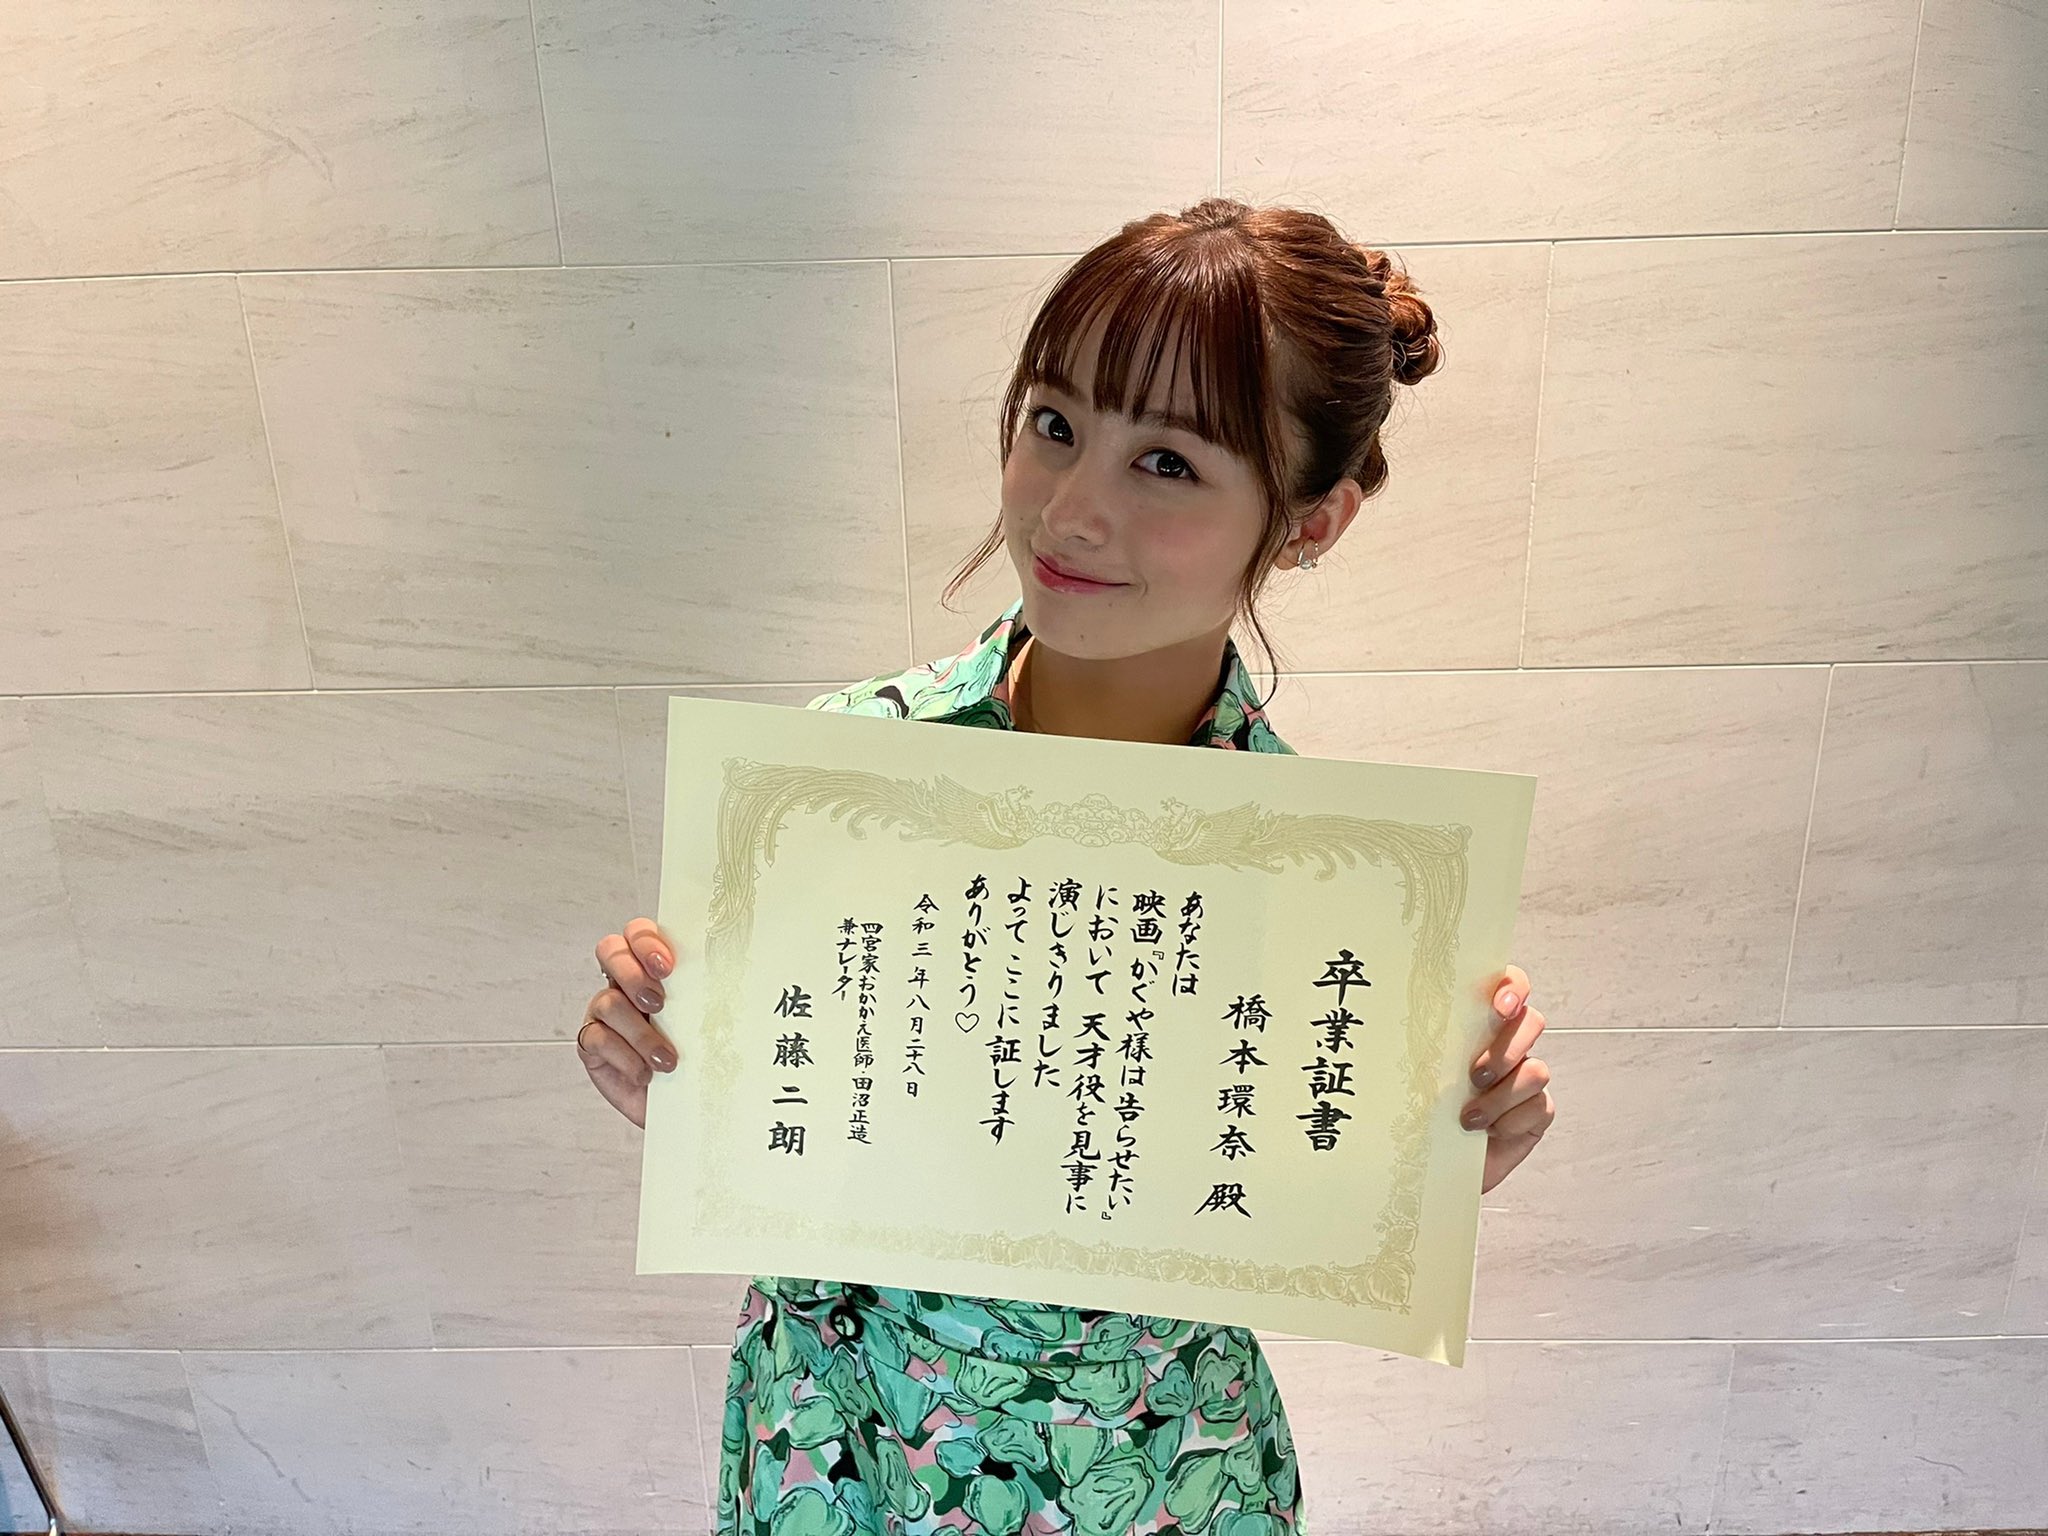 卒業証書
橋本環奈 殿
あなたは
映画『かぐや様は告らせたい』
において 天才役を見事に
演じきりました
よって ここに証します
ありがとう♡
令和三年八月二十八日
四宮家おかかえ医師・田沼正造
兼ナレーター
佐藤二朗